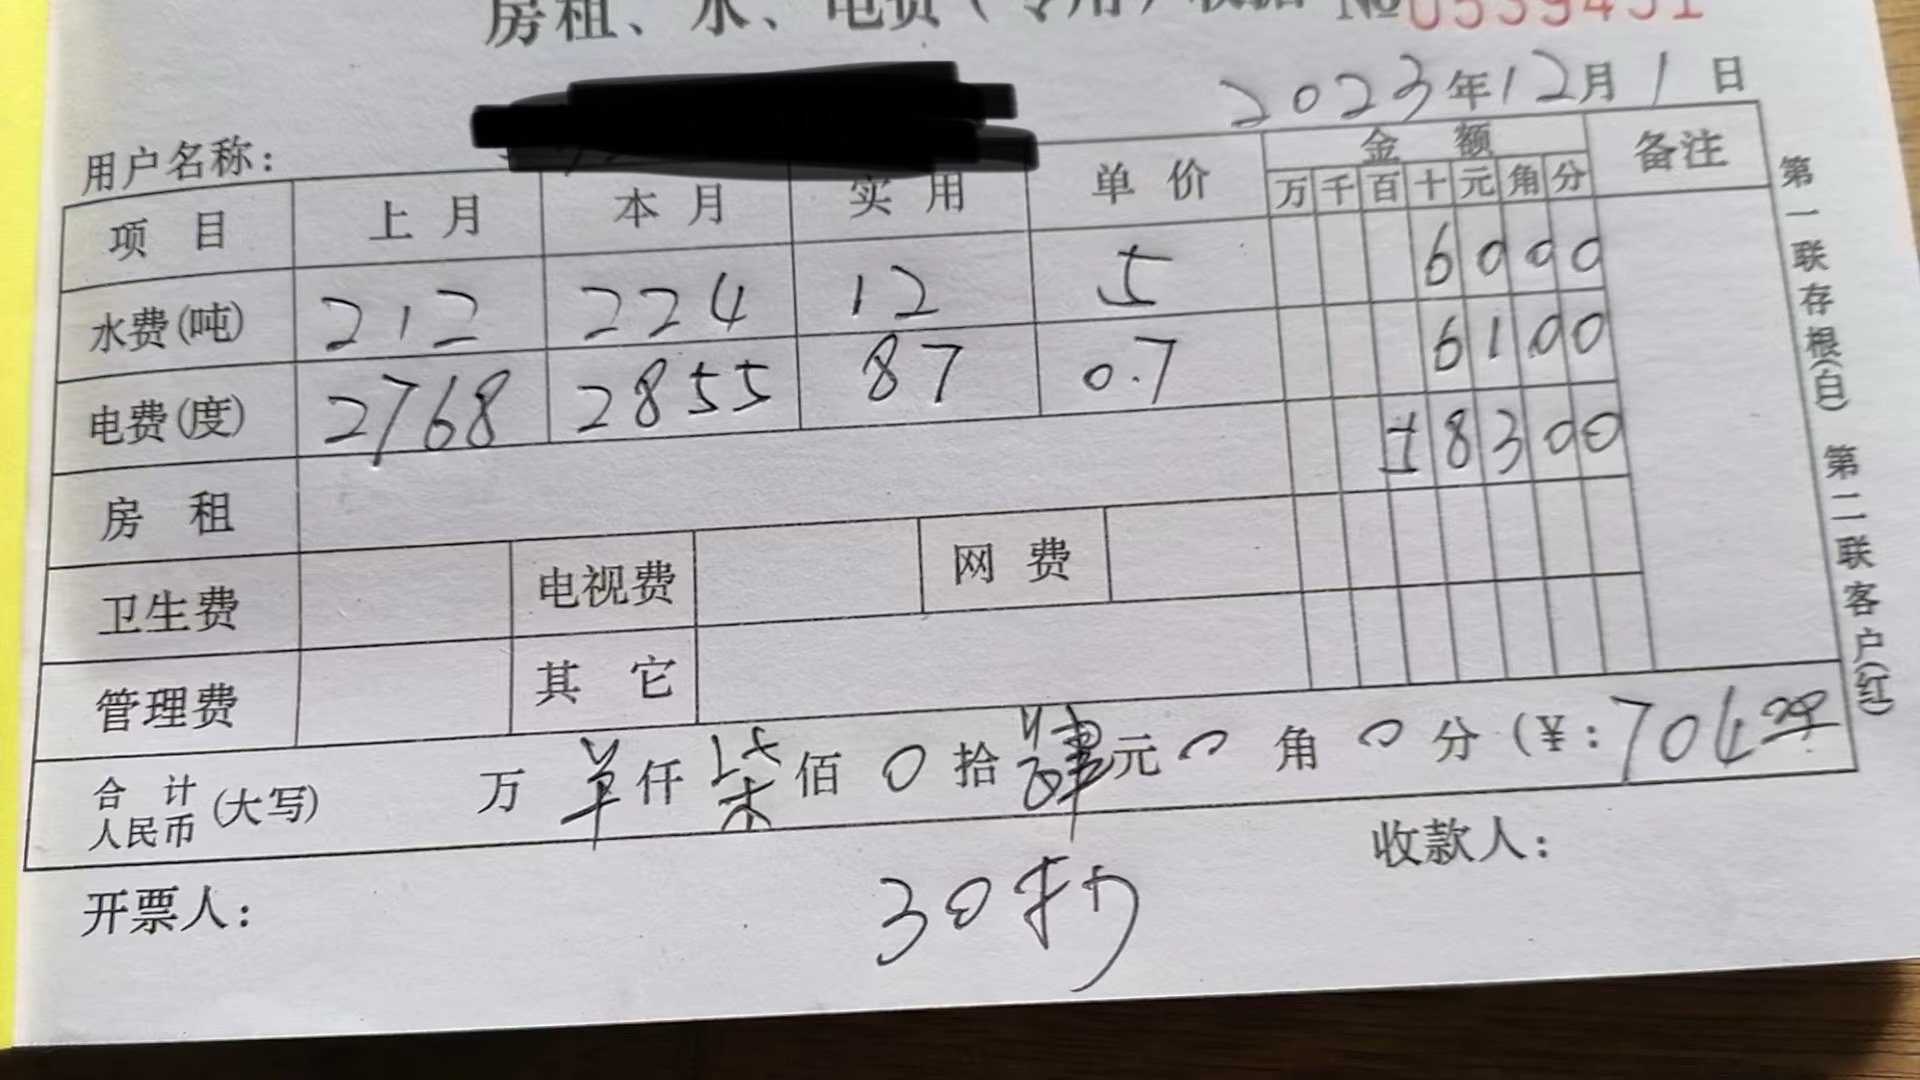 房租、水、电费(专用)收据 №0539451
2023年12月1日
用户名称:
项目 上月 本月 实用 单价 金额 备注
万 千 百 十 元 角 分
水费(吨) 212 224 12 5 6000
电费(度) 2768 2855 87 0.7 6100
房租 18300
卫生费 电视费 网费
管理费 其它
合计人民币(大写) 万 仟 柒佰 0拾 肆元 0角 0分 (¥: 704
开票人: 收款人:
30
第一联存根(白) 第二联客户(红)